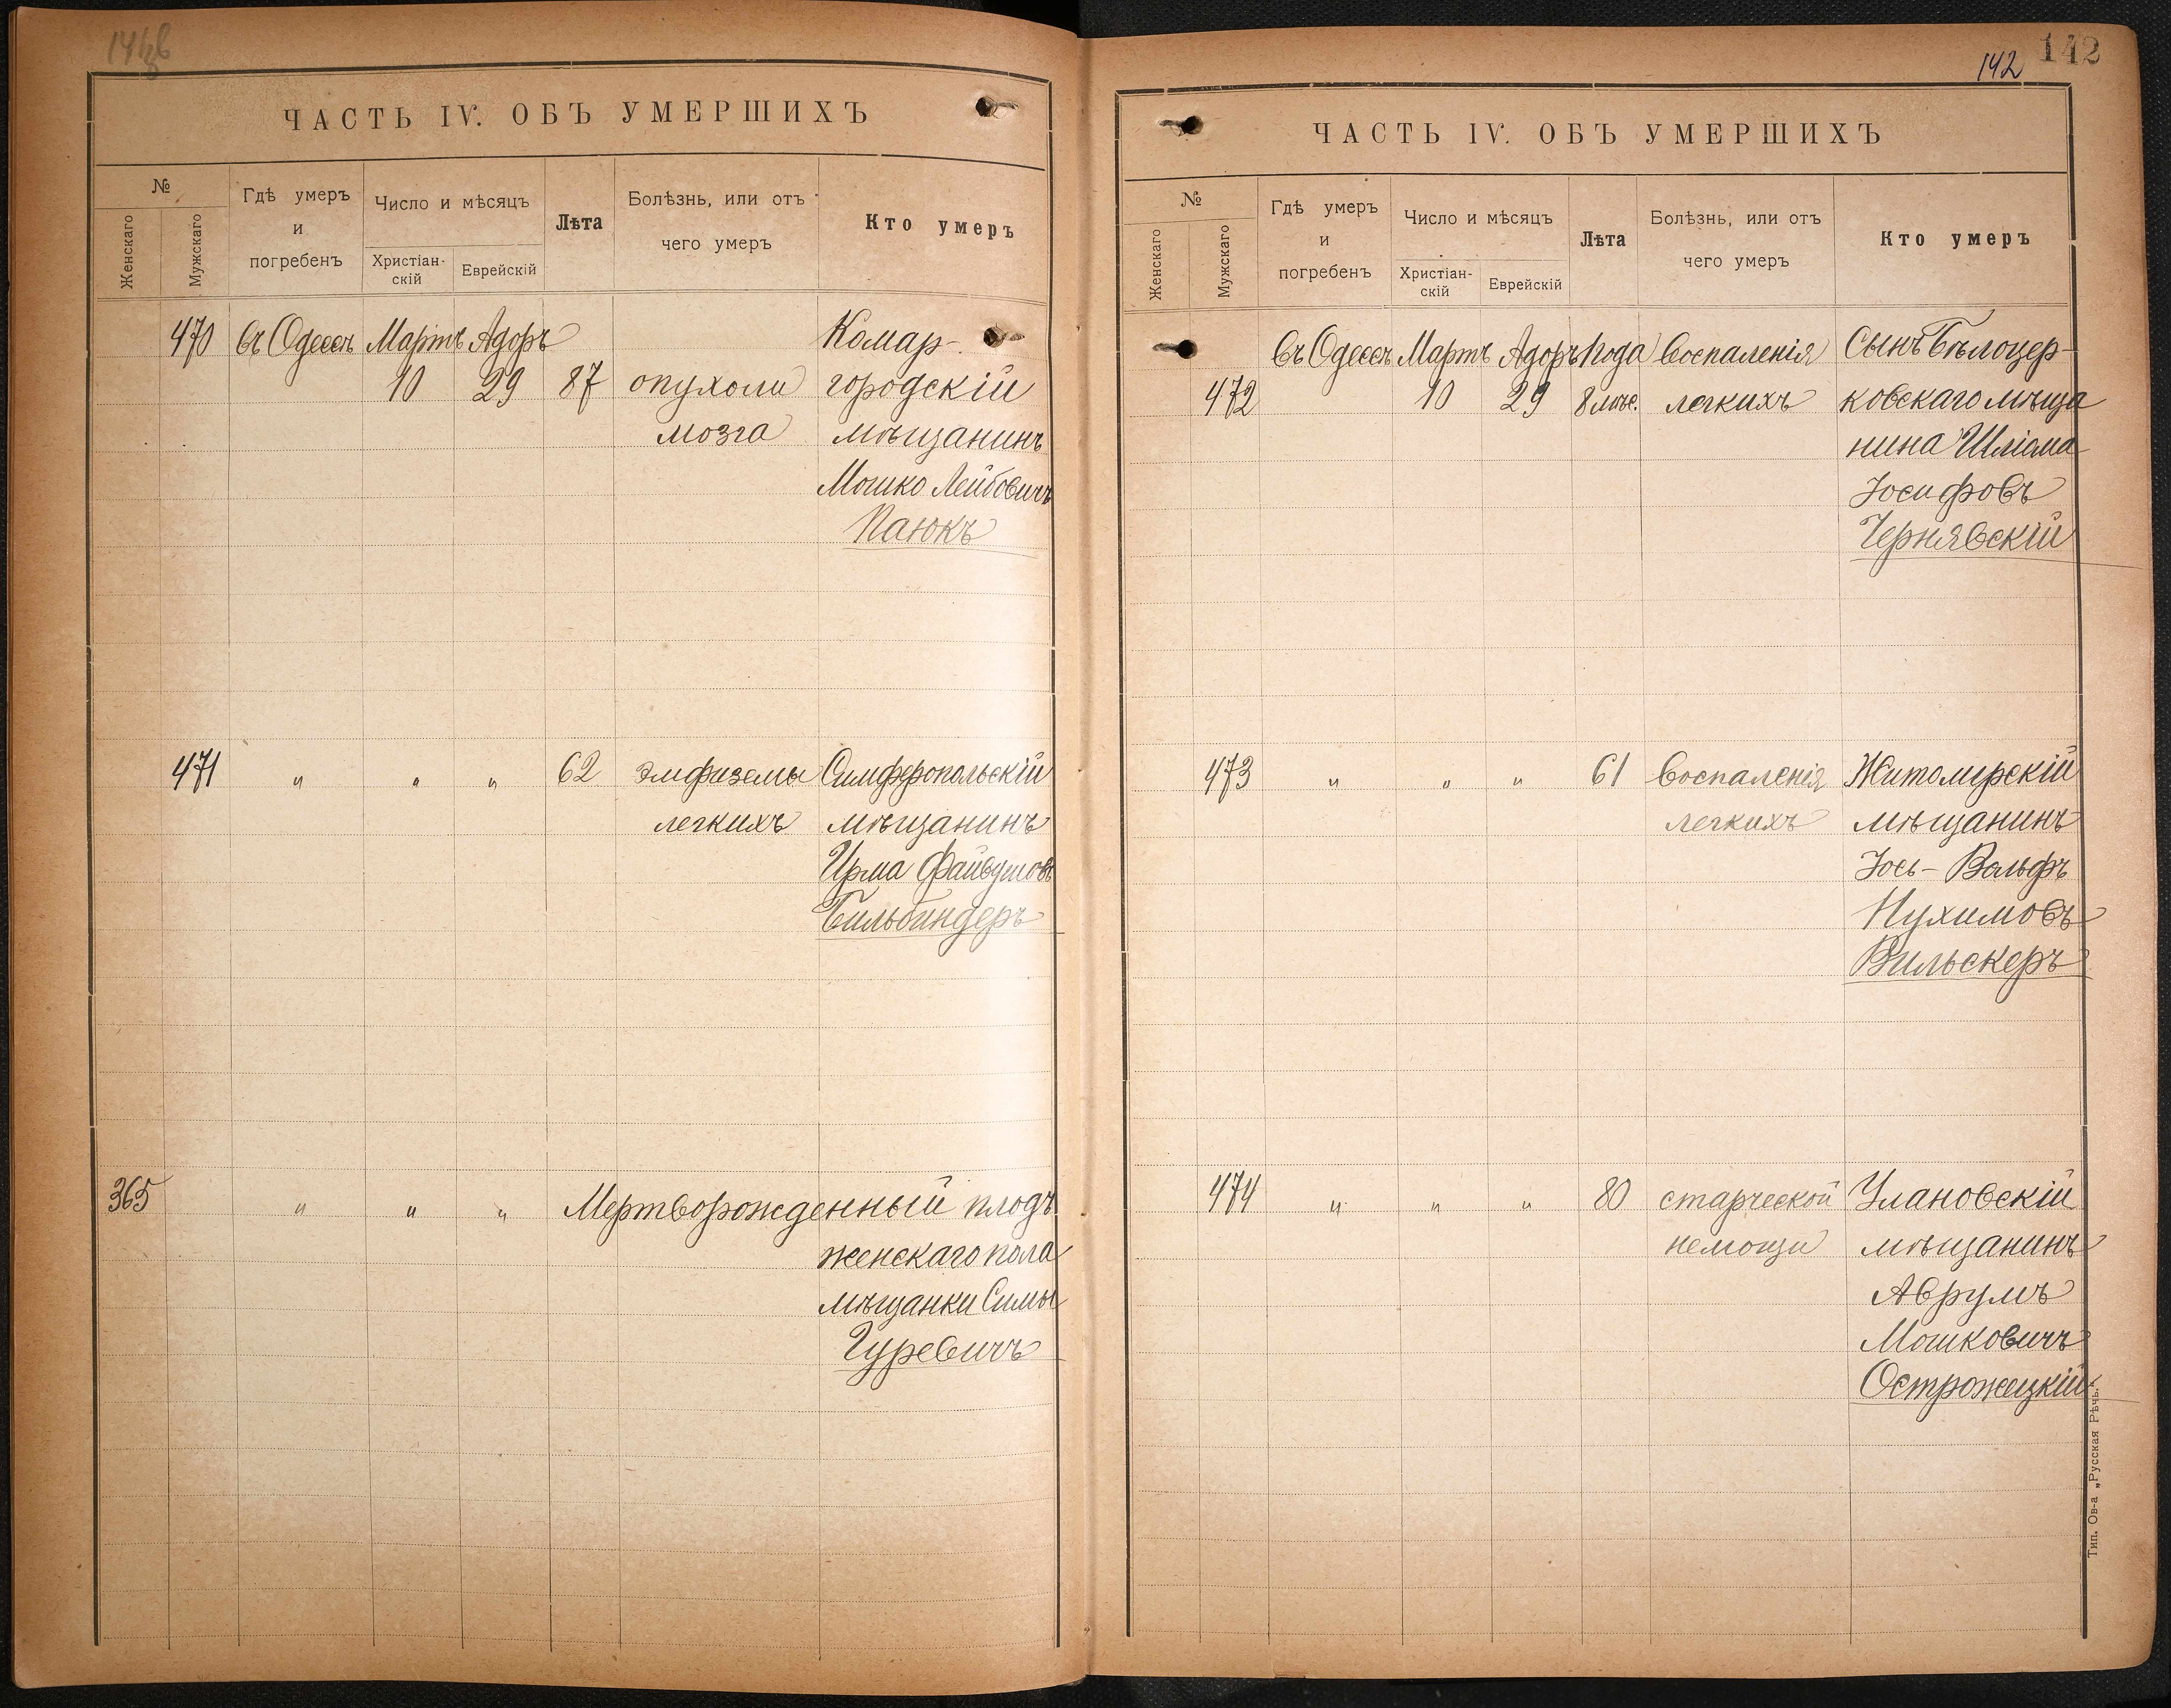 ЧАСТЬ IV. ОБЪ УМЕРШИХЪ
№
Женскаго
Мужскаго
Гдѣ умеръ
и
погребенъ
Число и мѣсяцъ
Христіан-
скій
Еврейскій
Лѣта
Болѣзнь, или отъ
чего умеръ
Кто умеръ
470 въ Одессѣ Мартъ Адоръ Комар-
10 29 87 опухоли городскій
мозга мѣщанинъ
Мошко Лейбовичъ
Паюкъ
471 " " " 62 эмфиземы Симферопольскій
легкихъ мѣщанинъ
Ирма Файвушовъ
Бильбиндеръ
365 " " " Мертворожденный плодъ
женскаго пола
мѣщанки Симы
Гуревичъ
142 142
ЧАСТЬ IV. ОБЪ УМЕРШИХЪ
№
Женскаго
Мужскаго
Гдѣ умеръ
и
погребенъ
Число и мѣсяцъ
Христіан-
скій
Еврейскій
Лѣта
Болѣзнь, или отъ
чего умеръ
Кто умеръ
въ Одессѣ Мартъ Адоръ 1 года Воспаленія Сынъ Бѣлоцер-
472 10 29 8 мѣс. легкихъ ковскаго мѣща
нина Шліома
Іосифовъ
Чернявскій
473 " " " 61 Воспаленія Житомирскій
легкихъ мѣщанинъ
Іось-Вольфъ
Нухимовъ
Вильскеръ
474 " " " 80 старческой Улановскій
немощи мѣщанинъ
Аврумъ
Мошковичъ
Острожецкій
Тип. Ов-а „Русская Рѣчь."